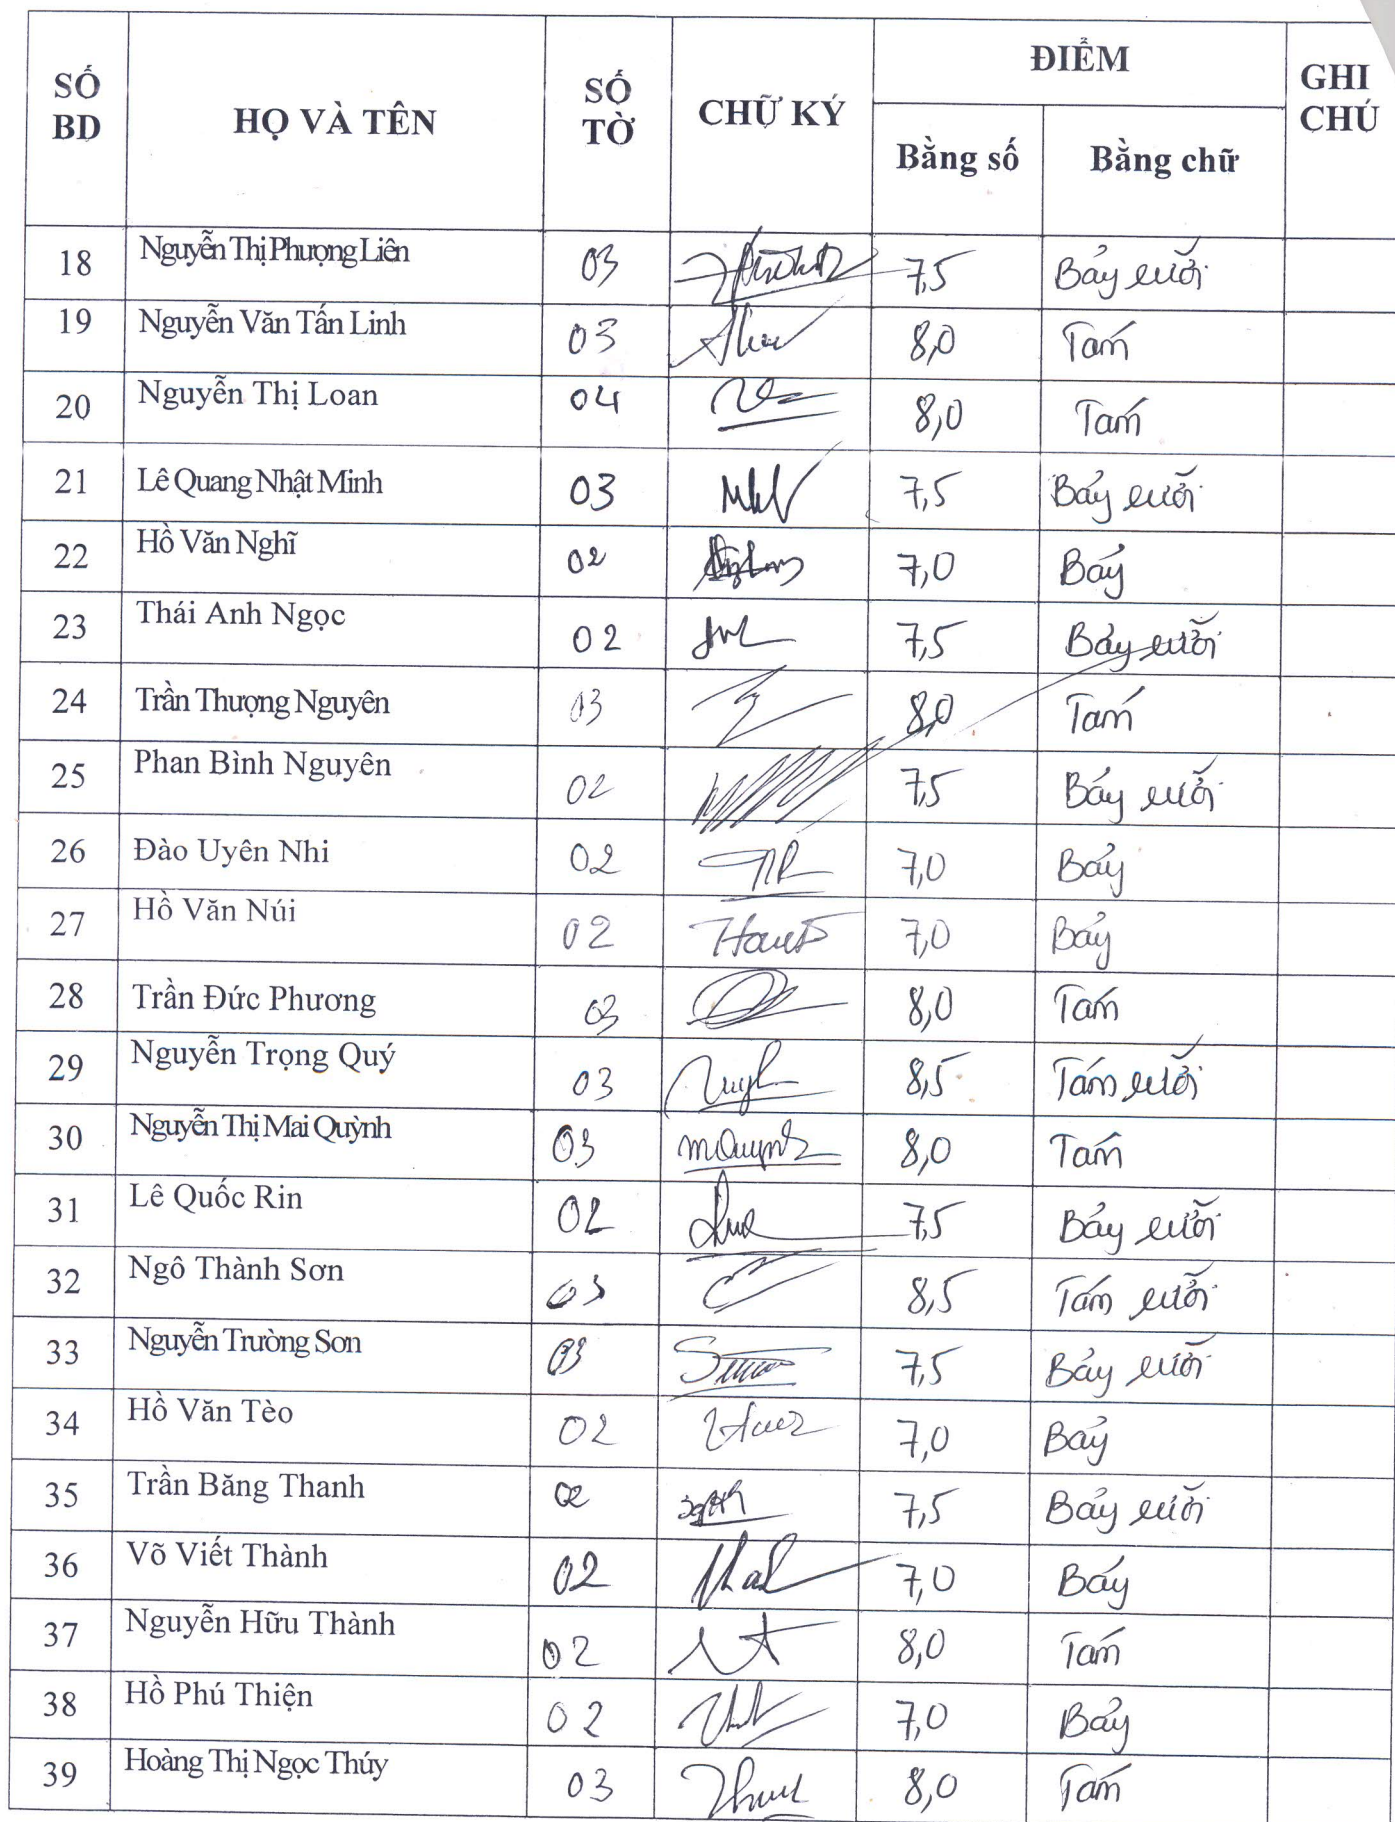 SỐ BD HỌ VÀ TÊN SỐ TỜ CHỮ KÝ ĐIỂM GHI CHÚ
Bằng số Bằng chữ
18 Nguyễn Thị Phượng Liên 03 7,5 Bảy rưỡi
19 Nguyễn Văn Tấn Linh 03 8,0 Tám
20 Nguyễn Thị Loan 04 8,0 Tám
21 Lê Quang Nhật Minh 03 7,5 Bảy rưỡi
22 Hồ Văn Nghĩ 02 7,0 Bảy
23 Thái Anh Ngọc 02 7,5 Bảy rưỡi
24 Trần Thượng Nguyên 03 8,0 Tám
25 Phan Bình Nguyên 02 7,5 Bảy rưỡi
26 Đào Uyên Nhi 02 7,0 Bảy
27 Hồ Văn Núi 02 7,0 Bảy
28 Trần Đức Phương 03 8,0 Tám
29 Nguyễn Trọng Quý 03 8,5 Tám rưỡi
30 Nguyễn Thị Mai Quỳnh 03 mQuynh 8,0 Tám
31 Lê Quốc Rin 02 7,5 Bảy rưỡi
32 Ngô Thành Sơn 03 8,5 Tám rưỡi
33 Nguyễn Trường Sơn 03 7,5 Bảy rưỡi
34 Hồ Văn Tèo 02 7,0 Bảy
35 Trần Băng Thanh 02 7,5 Bảy rưỡi
36 Võ Viết Thành 02 7,0 Bảy
37 Nguyễn Hữu Thành 02 8,0 Tám
38 Hồ Phú Thiện 02 7,0 Bảy
39 Hoàng Thị Ngọc Thúy 03 8,0 Tám